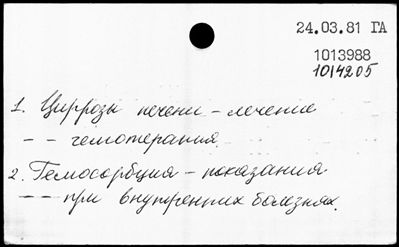 24.03.81 ГА
1013988
1014205
1. Циррозы печени - лечение
- - гемотерапия.
2. Гемосорбция - показания
- - при внутренних болезнях.